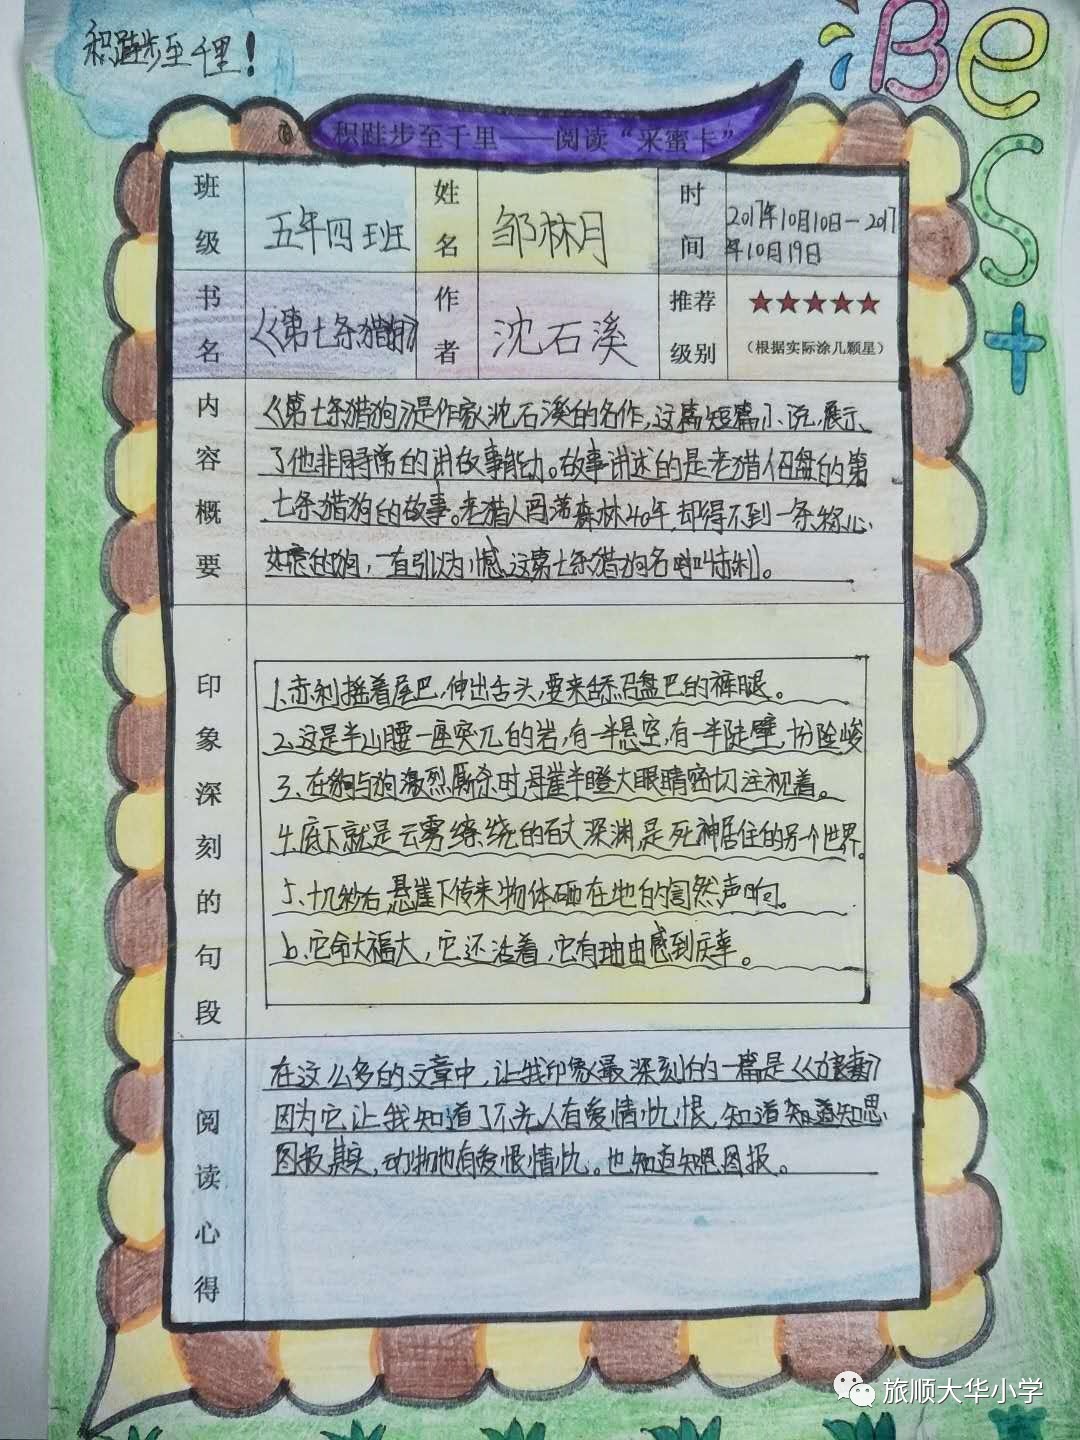 积跬步至千里!
Best+
积跬步至千里——阅读“采蜜卡”
班级
五年四班
姓名
邹林月
时间
2017年10月10日—2017
年10月19日
书名
《第七条猎狗》
作者
沈石溪
推荐级别
★★★★★
(根据实际涂几颗星)
内容概要
《第七条猎狗》是作家沈石溪的名作,这篇短篇小说,展示
了他非同寻常的讲故事能力。故事讲述的是老猎人召盘的第
七条猎狗的故事。老猎人闯荡森林40年,却得不到一条称心
如意的狗,一直引以为憾,这第七条猎狗名叫赤利。
印象深刻的句段
1.赤利摇着尾巴,伸出舌头,要来舔召盘巴的裤腿。
2.这是半山腰一座突兀的岩,有一半悬空,有一半陡壁,十分险峻
3、在狗与狗激烈厮杀时,丹崖半瞪大眼睛密切注视着。
4.底下就是云雾缭绕的百丈深渊,是死神居住的另一个世界。
5、十几秒后,悬崖下传来物体砸在地的訇然声响。
6、它命大福大,它还活着,它有理由感到庆幸。
阅读心得
在这么多的文章中,让我印象最深刻的一篇是《狼妻》
因为它让我知道了不光人有爱情仇恨,知道知道知恩
图报其实,动物也有爱恨情仇。也知道知恩图报。
旅顺大华小学